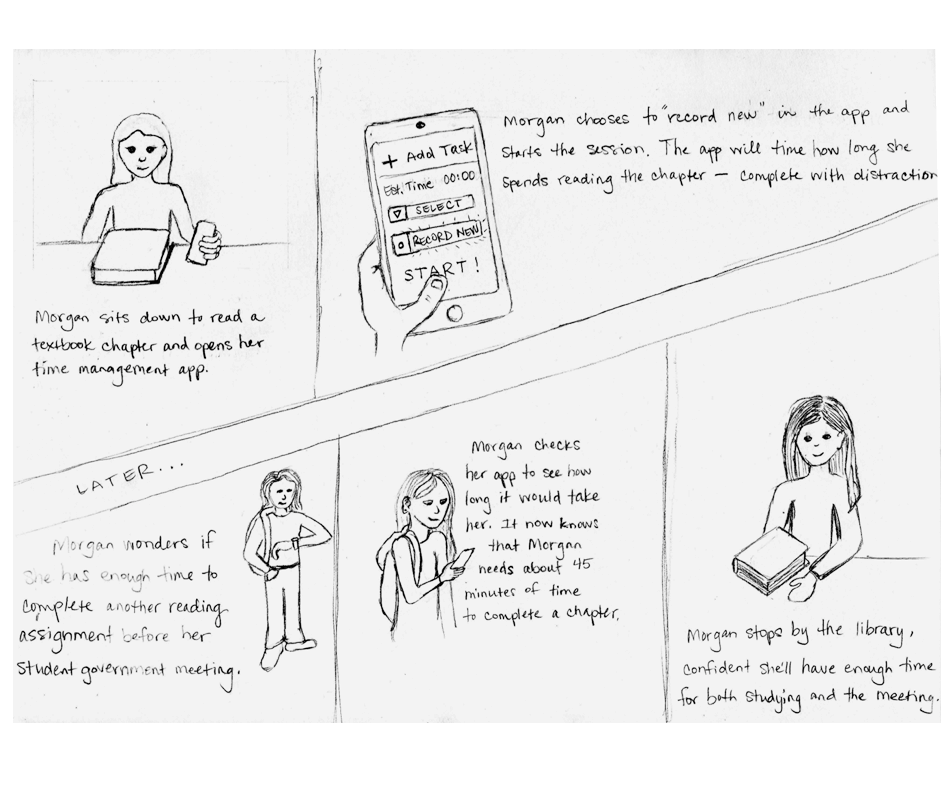 Morgan sits down to read a
textbook chapter and opens her
time management app.
+ Add Task
Est. Time 00:00
SELECT
RECORD NEW
START!
Morgan chooses to "record new" in the app and
starts the session. The app will time how long she
spends reading the chapter — complete with distraction
LATER...
Morgan wonders if
she has enough time to
complete another reading
assignment before her
student government meeting.
Morgan checks
her app to see how
long it would take
her. It now knows
that Morgan
needs about 45
minutes of time
to complete a chapter.
Morgan stops by the library,
confident she'll have enough time
for both studying and the meeting.